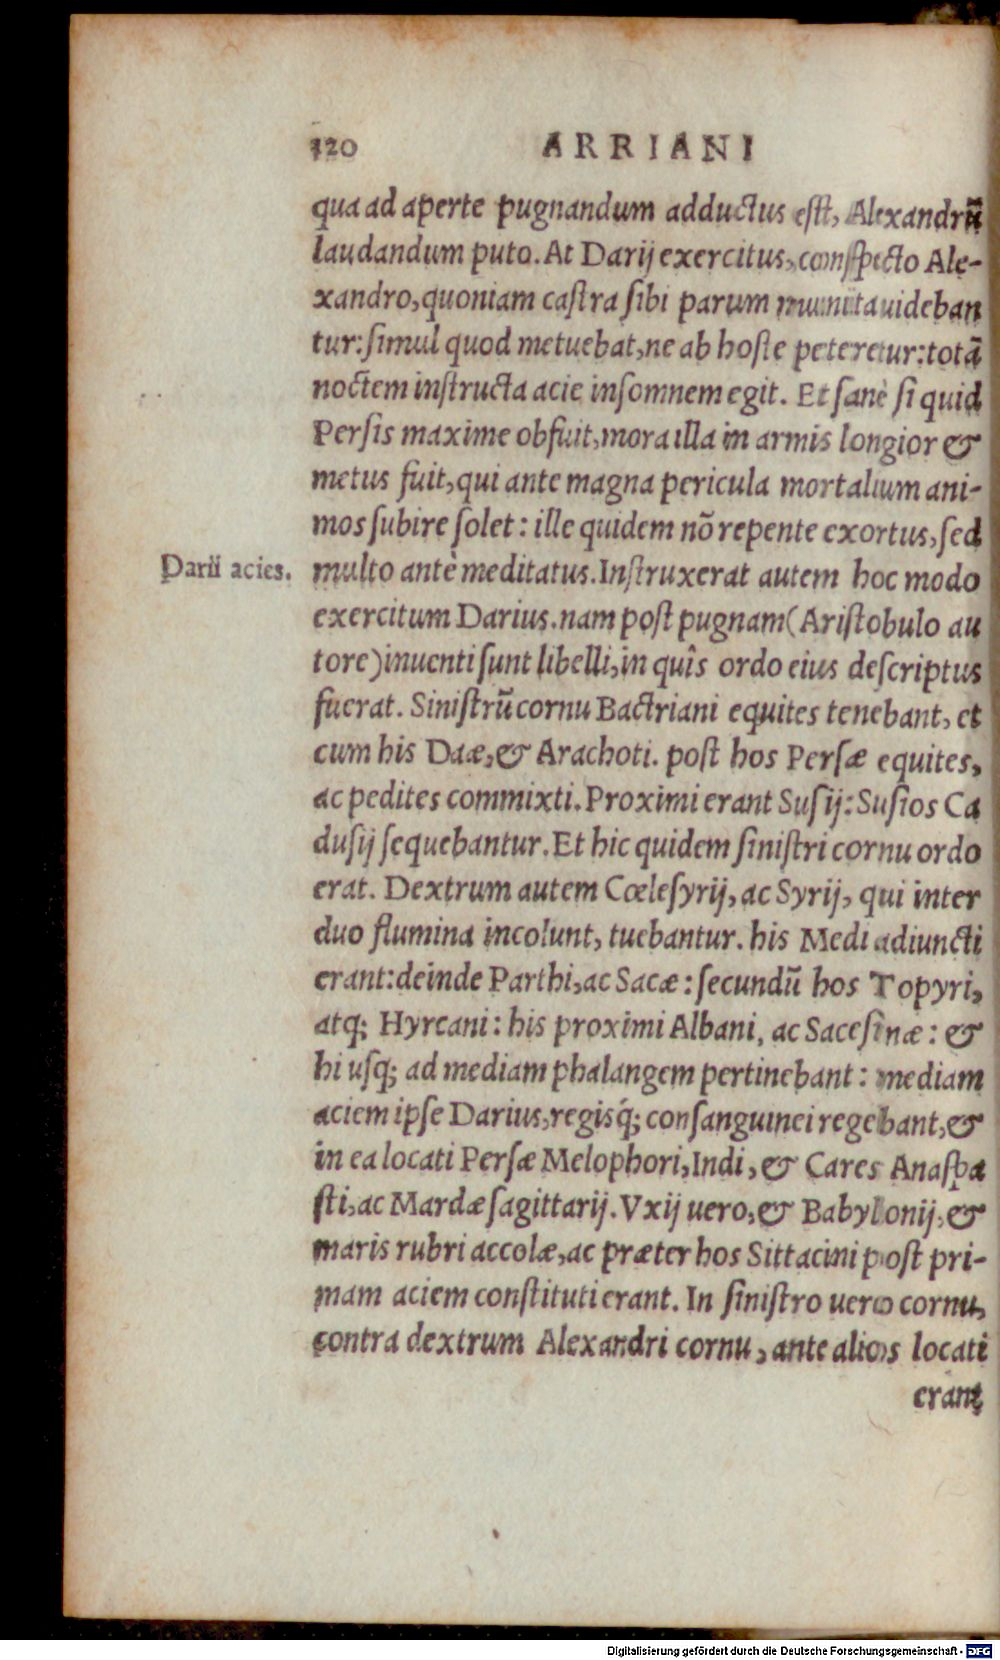 120 ARRIANI
qua ad aperte pugnandum adductus est, Alexandrū
laudandum puto. At Darij exercitus, conſpecto Ale-
xandro, quoniam caſtra ſibi parum munita uideban
tur: ſimul quod metuebat, ne ab hoſte peteretur: totā
noctem inſtructa acie inſomnem egit. Et ſanè ſi quid
Perſis maxime obfuit, mora illa in armis longior &
metus fuit, qui ante magna pericula mortalium ani-
mos ſubire ſolet: ille quidem nō repente exortus, ſed
Darii acies.
multo antè meditatus. Inſtruxerat autem hoc modo
exercitum Darius. nam poſt pugnam (Ariſtobulo au
tore) inuenti ſunt libelli, in quîs ordo eius deſcriptus
fuerat. Siniſtrū cornu Bactriani equites tenebant, et
cum his Daæ, & Arachoti. poſt hos Perſæ equites,
ac pedites commixti. Proximi erant Suſij: Suſios Ca
duſij ſequebantur. Et hic quidem ſiniſtri cornu ordo
erat. Dextrum autem Cœleſyrij, ac Syrij, qui inter
duo flumina incolunt, tuebantur. his Medi adiuncti
erant: deinde Parthi, ac Sacæ: ſecundū hos Topyri,
atq; Hyrcani: his proximi Albani, ac Saceſinæ: &
hi uſq; ad mediam phalangem pertinebant: mediam
aciem ipſe Darius, regisq́; conſanguinei regebant, &
in ea locati Perſæ Melophori, Indi, & Cares Anaſpa
ſti, ac Mardæ ſagittarij. Vxij uero, & Babylonij, &
maris rubri accolæ, ac præter hos Sittacini poſt pri-
mam aciem conſtituti erant. In ſiniſtro uero cornu,
contra dextrum Alexandri cornu, ante alios locati
erant
Digitalisierung gefördert durch die Deutsche Forschungsgemeinschaft - DFG